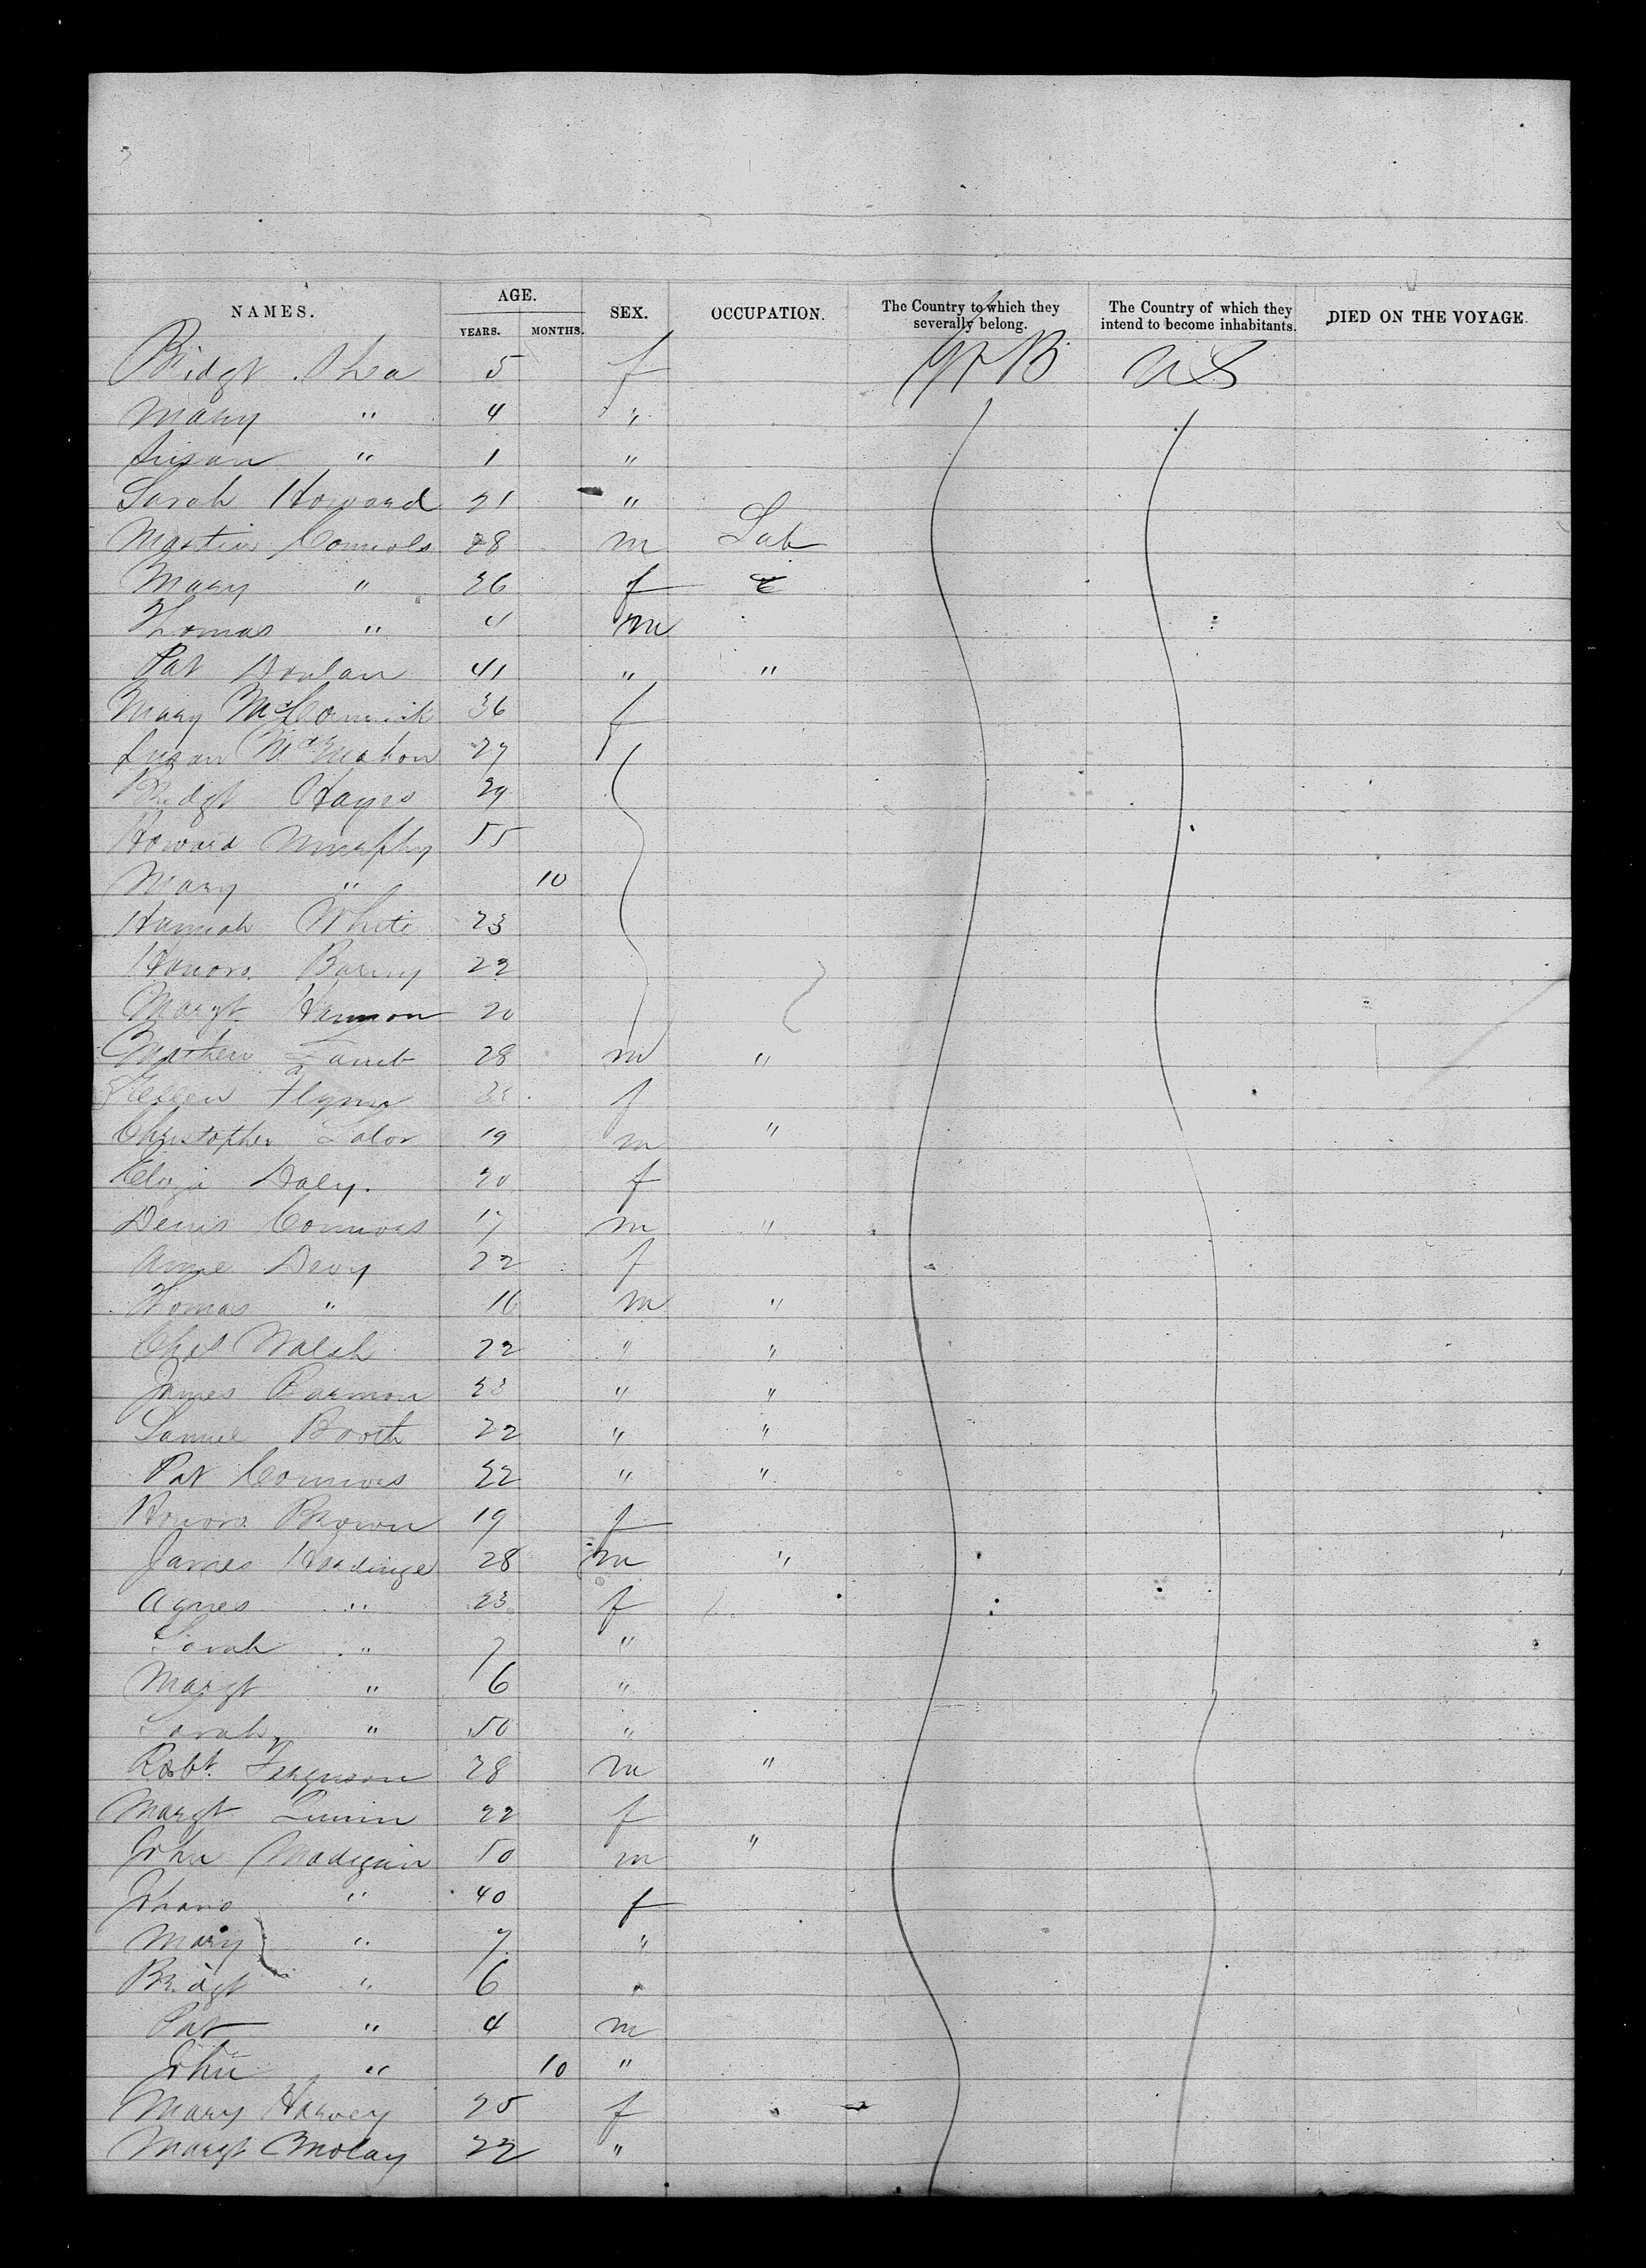 NAMES. AGE. YEARS. MONTHS. SEX. OCCUPATION. The Country to which they severally belong. The Country of which they intend to become inhabitants. DIED ON THE VOYAGE.
Bridgt Shea 5 f Gt B U S
Mary " 4 "
Susan " 1 "
Sarah Howard 21 "
Martin Connols 28 m Lab
Mary " 26 f
Thomas " 4 m
Pat Donlan 41 " "
Mary McCormick 36 f
Susan McMahon 27
Bridgt Hayes 29
Howard Murphy 55
Mary " 10
Hannah White 23
Honora Barry 22
Margt Hannon 20
Mathew Lamb 28 m "
Ellen Flynn f
Christopher Lalor 19 m "
Eliza Daly. 20 f
Denis Connors 17 m "
Anne Devy 22 f
Thomas " 16 m "
Chas Walsh 22 " "
James Barmon 23 " "
Samuel Booth 22 " "
Pat Connors 22 " "
Honora Brown 19 f
James Hardinge 28 m "
Agnes " 23 f
Sarah " 7 "
Margt " 6 "
Sarah " 50 "
Robt. Ferguson 28 m "
Margt Quinn 22 f
John Madigan 50 m "
Johana " 40 f
Mary " 7 "
Bridgt " 6 "
Pat " 4 m
John " 10 "
Mary Harvey 25 f
Margt 22 "